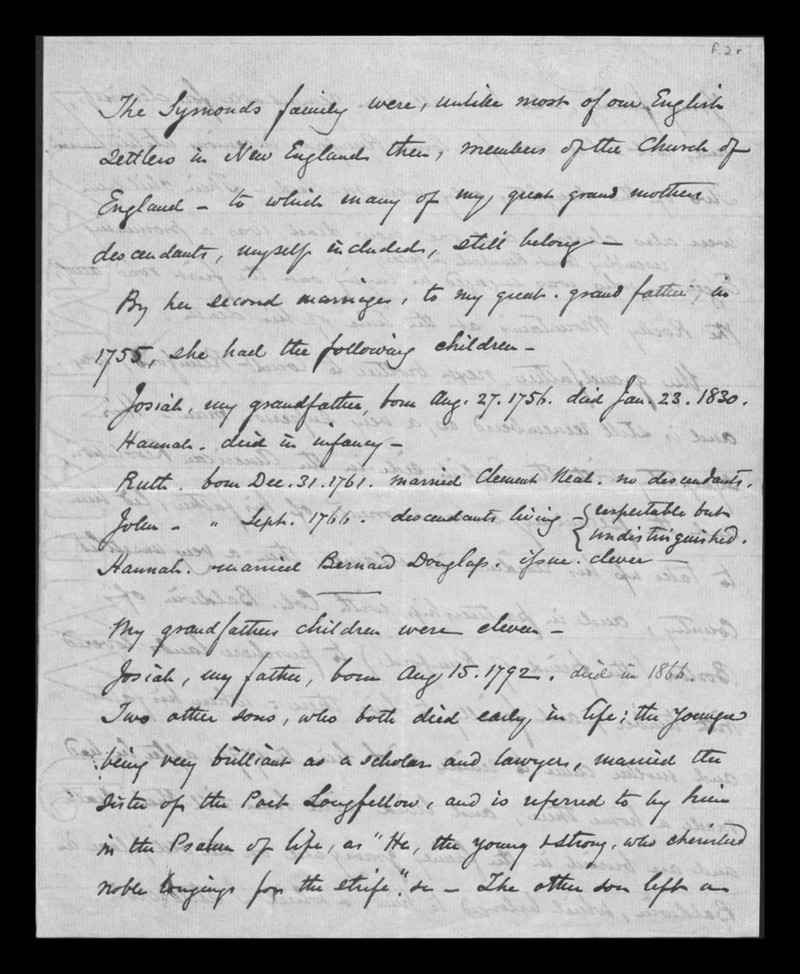 f. 2 r
The Symonds family were, unlike most of our English
Settlers in New England then, members of the Church of
England – to which many of my great grand mothers
descendants, myself included, still belong –
By her second marriage, to my great-grand father, in
1755, she had the following children –
Josiah, my grandfather, born Aug. 27. 1756. died Jan. 23. 1830.
Hannah. died in infancy –
Ruth. born Dec. 31. 1761. married Clement Neal. no descendants.
John – " Sept. 1766. descendants living – { respectable but
undistinguished.
Hannah. married Bernard Douglass. issue. clever
My grandfathers children were eleven –
Josiah, my father, born Aug 15. 1792. died in 1866.
Two other sons, who both died early in life; the younger
being very brilliant as a scholar and lawyer, married the
sister of the Poet Longfellow, and is referred to by him
in the Psalm of life, as "He, the young & strong, who cherished
noble longings for the strife". &c – The other son left a